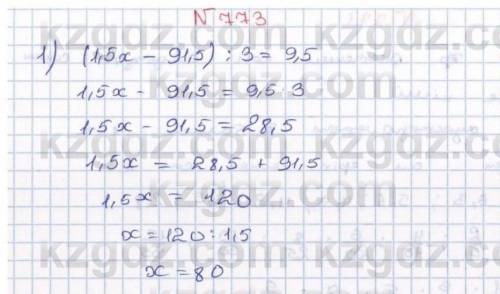 №773
1) (1,5x - 91,5) : 3 = 9,5
1,5x - 91,5 = 9,5·3
1,5x - 91,5 = 28,5
1,5x = 28,5 + 91,5
1,5x = 120
x = 120 : 1,5
x = 80
kzgdz.com